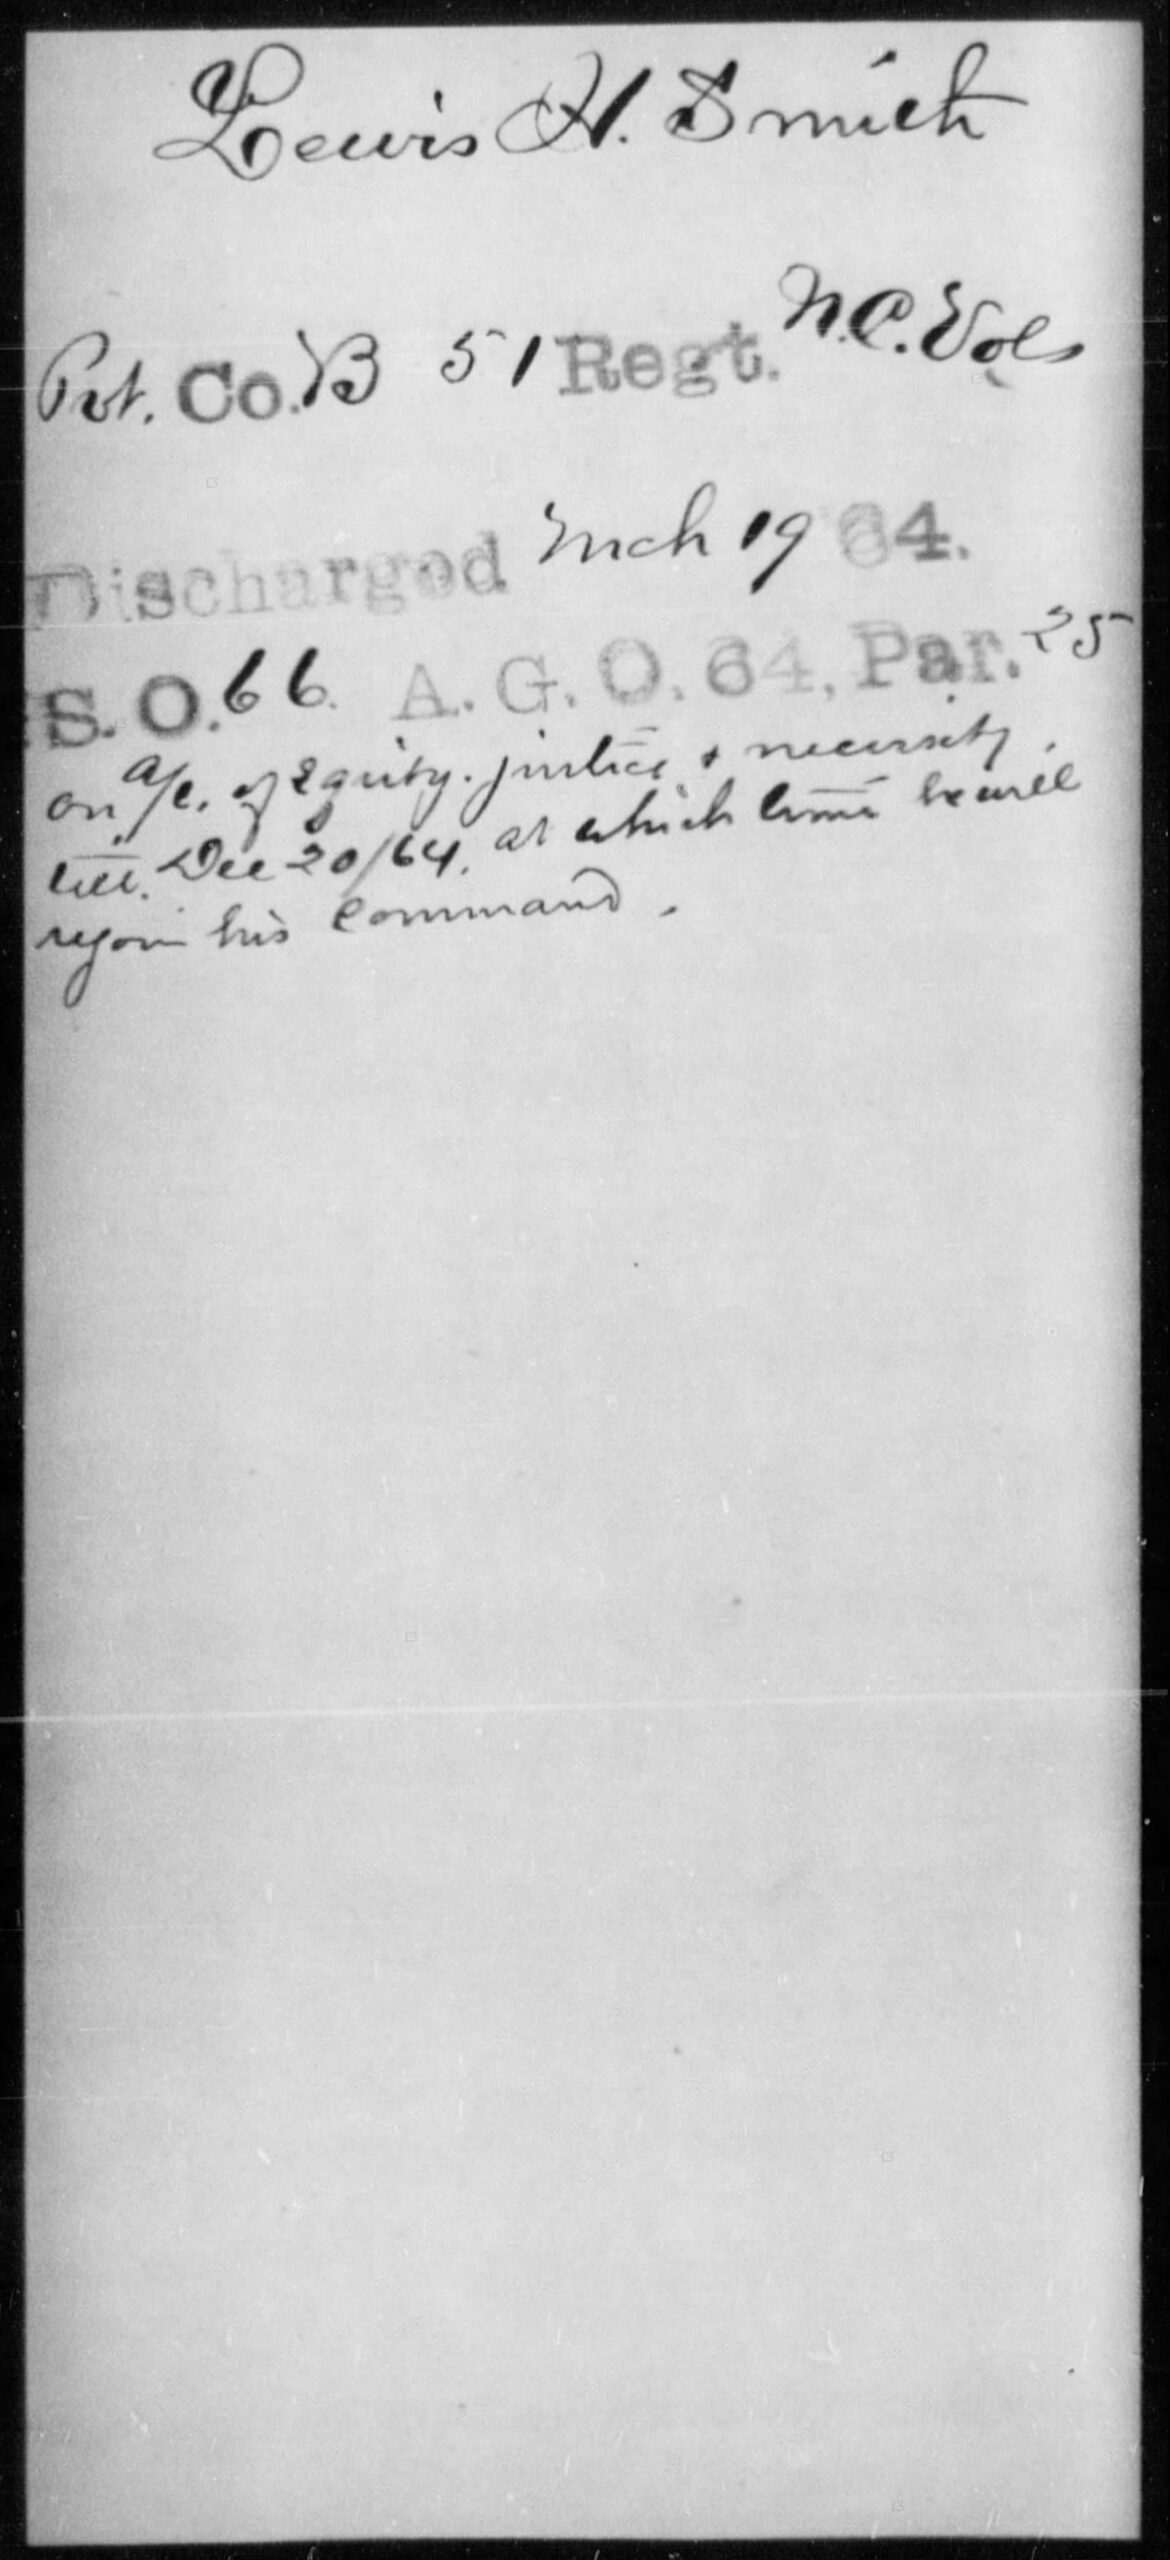 Lewis H. Smith
Pvt. Co. B 51 Regt. N.C. Vols
Discharged Mch 19 64.
S. O. 66. A. G. O. 64, Par. 25
on a/c. of Equity. justice & necessity.
till. Dec 20/64. at which time he will
rejoin his command.